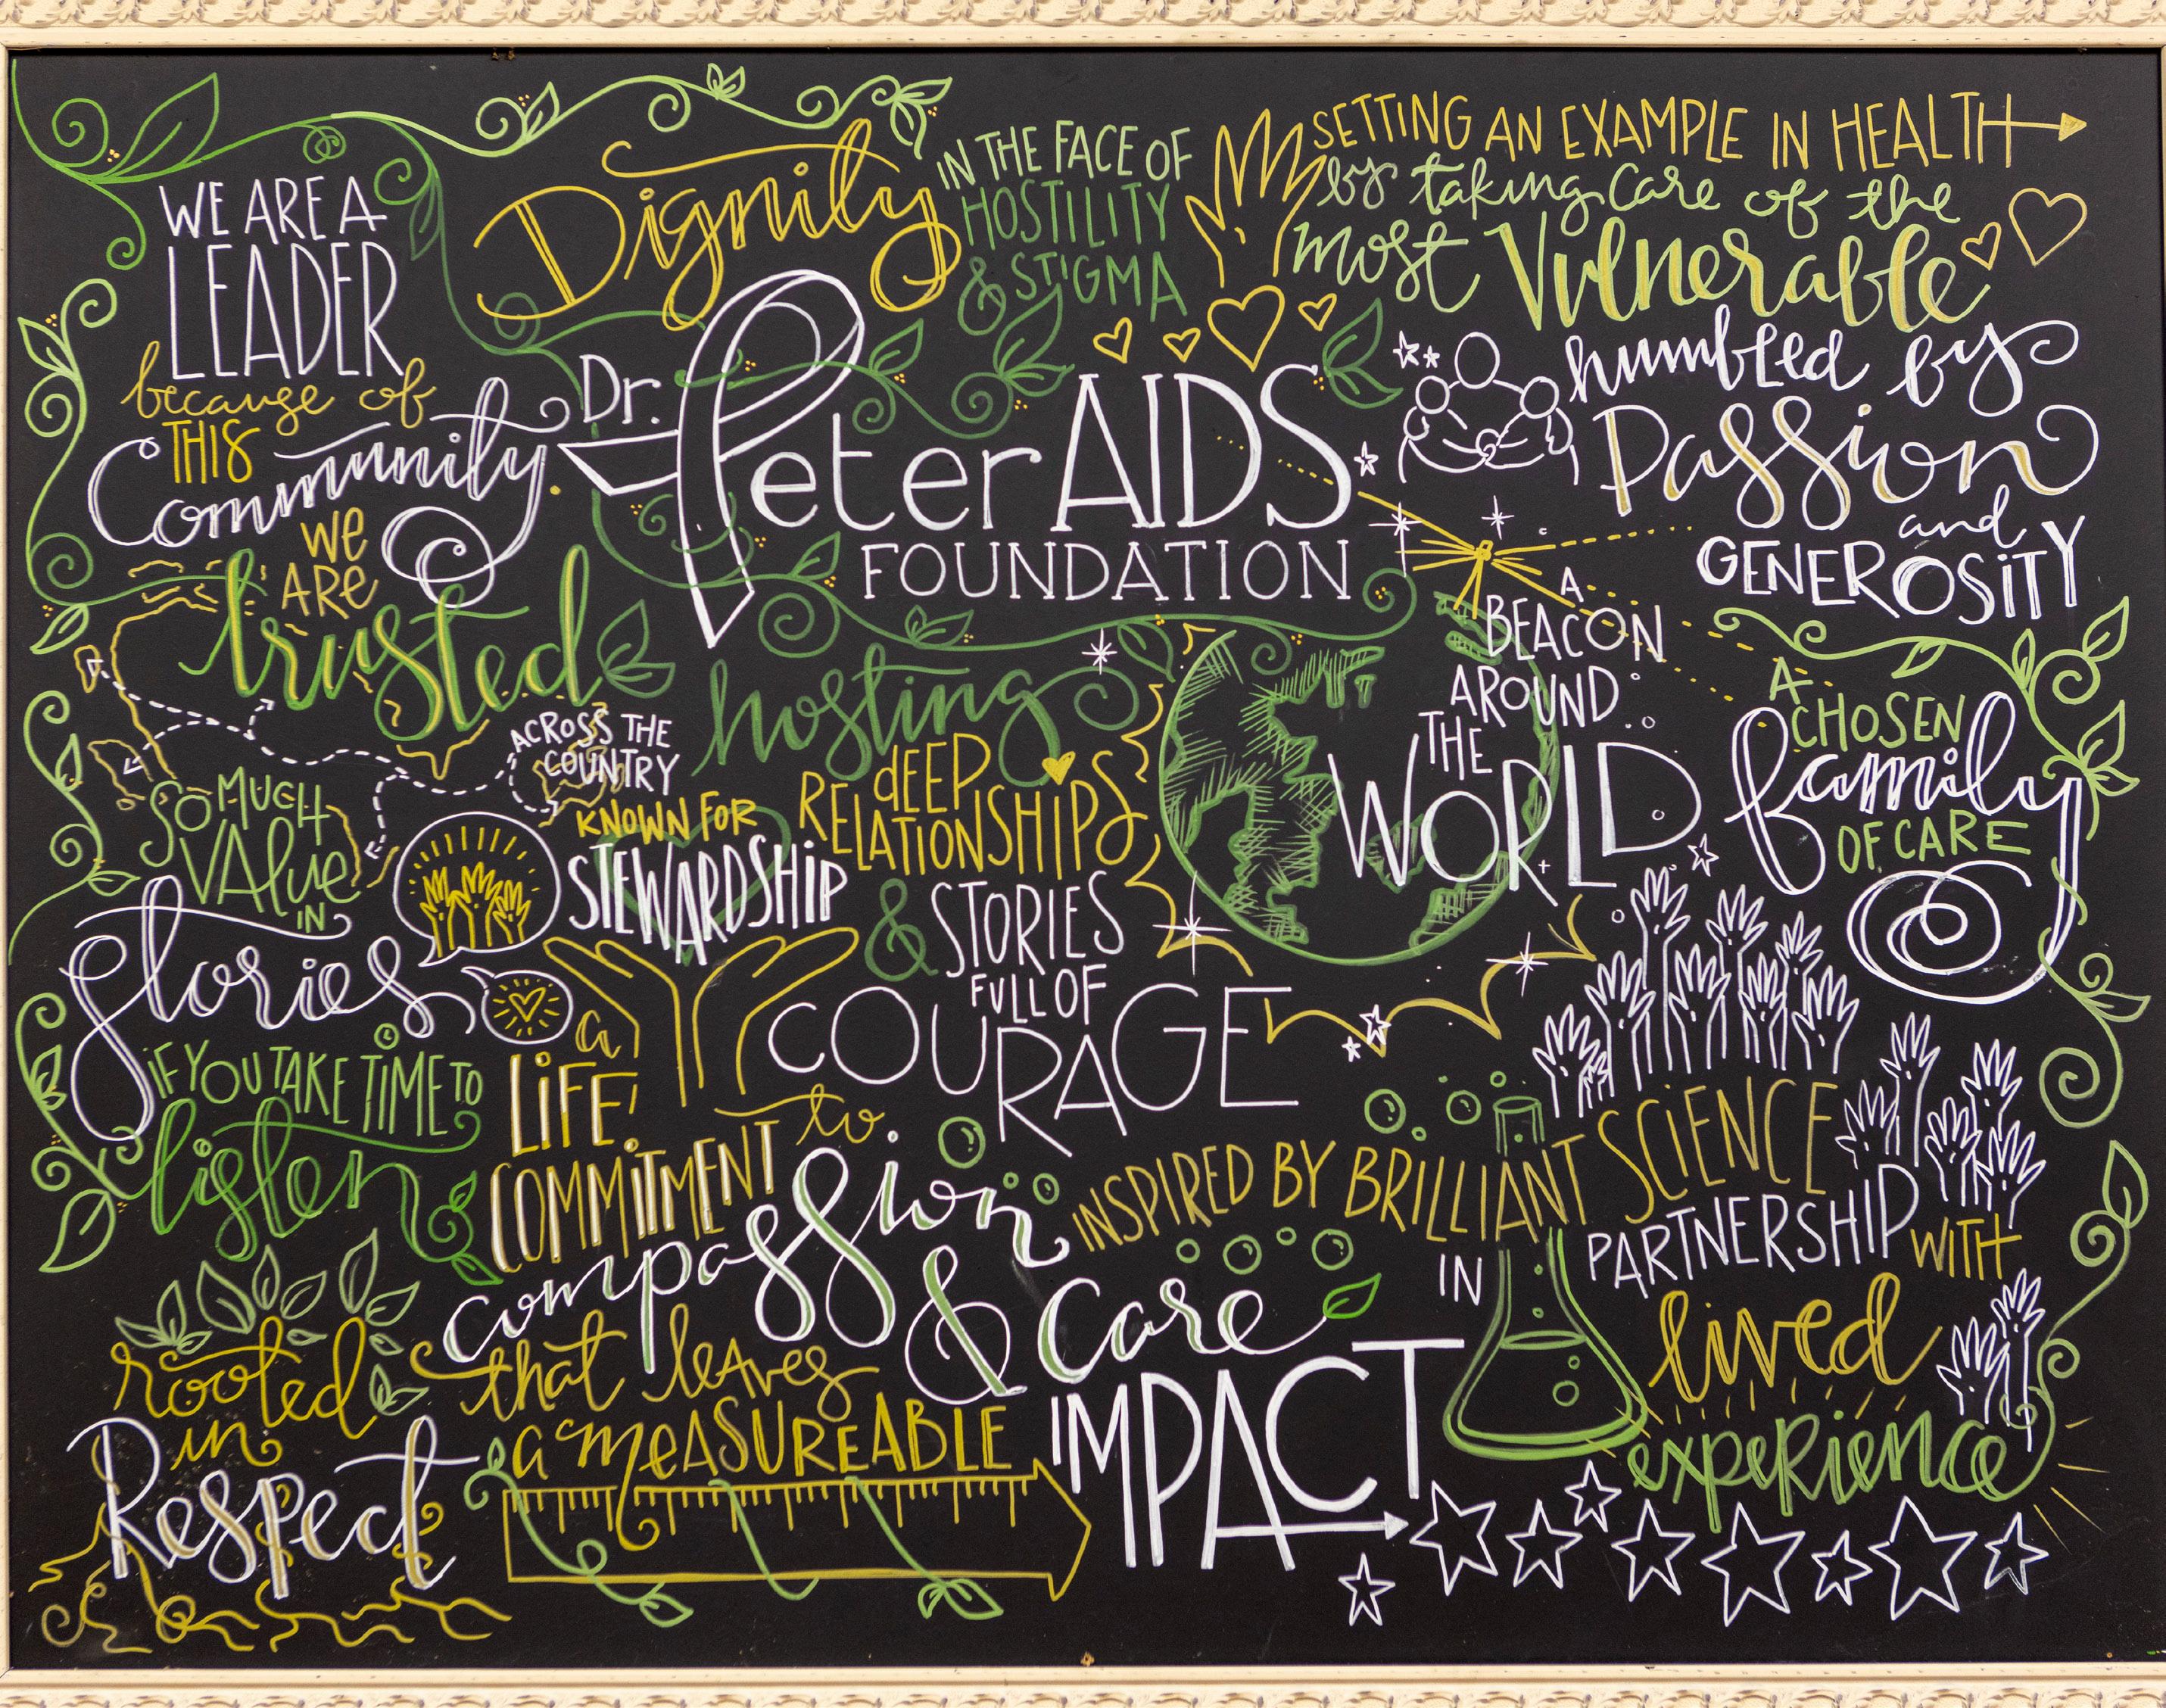 WE ARE A
LEADER
because of
THIS
Community
Dignity
IN THE FACE OF
HOSTILITY
& STIGMA
SETTING AN EXAMPLE IN HEALTH
by taking care of the
most Vulnerable
Dr.
Peter AIDS
FOUNDATION
humbled by
Passion
and
GENEROSITY
WE
ARE
trusted
ACROSS THE
COUNTRY
hosting
DEEP
RELATIONSHIPS
& STORIES
FULL OF
COURAGE
A
BEACON
AROUND
THE
WORLD
A
CHOSEN
family
OF CARE
SO MUCH
VALUE
IN
stories
IF YOU TAKE TIME TO
listen
KNOWN FOR
STEWARDSHIP
a
LIFE
COMMITMENT to
compassion
& care
that leaves
a MEASUREABLE
IMPACT
INSPIRED BY BRILLIANT SCIENCE
IN
PARTNERSHIP WITH
lived
experience
rooted
in
Respect